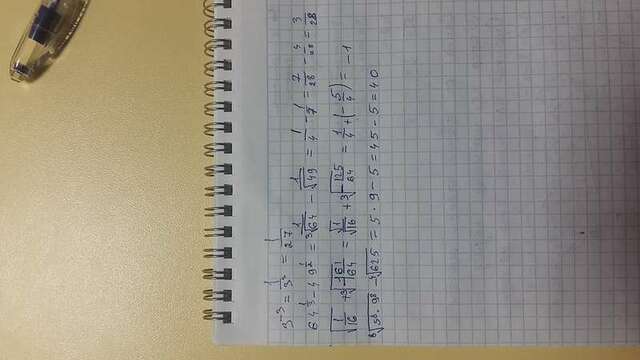 3^{-3} = 1/3³ = 1/27
64^{1/3} - 49^{1/2} = 1/∛64 - 1/√49 = 1/4 - 1/7 = 7/28 - 4/28 = 3/28
√(1/16) + ∛(-1 61/64) = √1/16 + ∛(-125/64) = 1/4 + (-5/4) = -1
⁶√(5⁶ · 9⁶) - ⁴√625 = 5 · 9 - 5 = 45 - 5 = 40